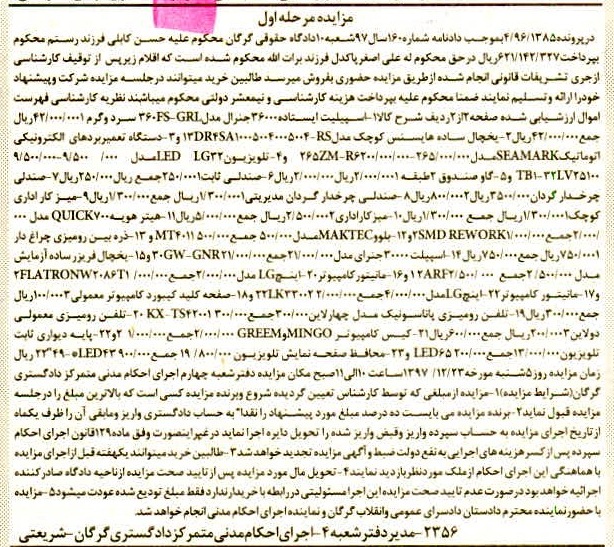 مزایده مرحله اول
درپرونده ۴/۹۶/۱۳۸۵بموجب دادنامه شماره۱۶۰سال۹۷شعبه۱۰دادگاه حقوقی گرگان محکوم علیه حسن کابلی فرزند رستم محکوم
بپرداخت۶۲۱/۱۴۲/۳۲۷ریال درحق محکوم له علی اصغرپاکدل فرزند برات الله محکوم شده است که اقلام زیرپس از توقیف کارشناسی
ازجری تشریفات قانونی انجام شده ازطریق مزایده حضوری بفروش میرسد طالبین خرید میتوانند درجلسه مزایده شرکت وپیشنهاد
خودرا ارائه وتسلیم نمایند ضمنا محکوم علیه بپرداخت هزینه کارشناسی و نیمعشر دولتی محکوم میباشند نظریه کارشناسی فهرست
اموال ارزشیابی شده صفحه۲از۲ردیف شرح کالا۱-اسپیلت ایستاده۳۶۰۰۰جنرال مدل۳۶۰FS-GRL سرد وگرم ۴۲/۰۰۰/۰۰۰۱ریال
جمع۴۲/۰۰۰/۰۰۰ریال۲-یخچال ساده هایسنس کوچک مدل۱۳DR۴SA۱۰۰۰۵۰۴۰۰۰۵۰۴-RS و۳-دستگاه تعمیربردهای الکترونیکی
اتوماتیکSEAMARKمدل۲۶۵ZM-R۶۲۰۰/۰۰۰/۰۰۰-۲۶۵/۰۰۰/۰۰۰ و۴-تلویزیونLED LG۳۲مدل ۹/۵۰۰/۰۰۰-۹/۵۰۰/۰۰۰
TB۱-۳۲LV۲۵۱۰۰ و۵-گاو صندوق ۲طبقه ۲/۰۰۰/۰۰۰۱-۲/۰۰۰/۰۰۰ریال۶-صندلی ثابت۲۵۰/۰۰۰۱جمع ریال۲۵۰/۰۰۰ریال۷-صندلی
چرخدار گردان۳۵۰/۰۰۰ریال۸۰۰/۰۰۰۲ریال۸-صندلی چرخدار گردان مدیریتی۱/۳۰۰/۰۰۰۱ریال جمع۱/۳۰۰/۰۰۰ریال۹-میز کار اداری
کوچک۱/۳۰۰/۰۰۰۱ریال جمع ۱/۳۰۰/۰۰۰ریال۱۰-میزکاراداری۲/۵۰۰/۰۰۰۲ریال جمع۵/۰۰۰/۰۰۰ریال۱۱-هیتر هویهQUICK۷۰۰ مدل ۰۰۰
/۲/۰۰۰جمع/۰۰۰/۲SMD REWORK۱۰۰۰ و۱۲-بلوورMAKTECمدل۵۰۰/۰۰۰جمع۵۰۰/۰۰۰MT۴۰۱۱ و۱۳-ذره بین رومیزی چراغ دار
۷۵۰/۰۰۰۱ریال جمع۷۵۰/۰۰۰ریال۱۴-اسپیلت ۳۰۰۰۰جنرای مدل۲۱/۰۰۰/۰۰۰جمع۳۰GW-GNR۲۱/۰۰۰/۰۰۰ و۱۵-یخچال فریزرساده آزمایش
مدل۲/۵۰۰/۰۰۰جمع ۱۲ARF۲/۵۰۰/۰۰۰ و۱۶-مانیتورکامپیوتر۲۰-اینچLG مدل۲/۰۰۰/۰۰۰جمع۲FLATRONW۲۰۸۶T۱/۰۰۰/۰۰۰
و۱۷-مانیتور کامپیوتر۲۲-اینچLGمدل۴/۰۰۰/۰۰۰جمع۲۲LK۳۳۰۲۲/۰۰۰/۰۰۰ و۱۸-صفحه کلید کیبورد کامپیوتر معمولی۱۰۰/۰۰۰۳ریال
جمع۳۰۰/۰۰۰ریال۱۹-تلفن رومیزی پاناسونیک مدل چهارلاین۳۰۰/۰۰۰جمع۳۰۰/۰۰۰KX-TS۴۲۰۰۱ ۲۰-تلفن رومیزی معمولی
دولاین۲۰۰/۰۰۰۳ریال جمع۶۰۰/۰۰۰ریال۲۱-کیس کامپیوترMINGO وGREEM۲/۰۰۰/۰۰۰جمع ۱/۰۰۰/۰۰۰۲ و۲۲-پایه دیواری ثابت
تلویزیون۱۳/۰۰۰/۰۰۰جمع۲۰۰/۰۰۰LED۶۵ و۲۳-محافظ صفحه نمایش تلویزیون ۱۹/۸۰۰/۰۰۰جمع۹۰۰/۰۰۰LED۴۳-۴۹-۲۲ ریال
زمان مزایده روز۵شنبه مورخه ۱۳۹۷/۱۲/۲۳ساعت ۱۰الی۱۱صبح مکان مزایده دفترشعبه چهارم اجرای احکام مدنی متمرکز دادگستری
گرگان(شرایط مزایده)۱-مزایده ازمبلغی که توسط کارشناس تعیین گردیده شروع وبرنده مزایده کسی است که بالاترین مبلغ را درجلسه
مزایده قبول نماید۲-برنده مزایده می بایست ده درصد مبلغ مورد پیشنهاد را نقدا" به حساب دادگستری واریز ومابقی آن را ظرف یکماه
ازتاریخ اجرای مزایده به حساب سپرده واریز وقبض واریز شده را تحویل دایره اجرا نماید درغیراینصورت وفق ماده۱۲۹قانون اجرای احکام
سپرده پس ازکسر هزینه های اجرایی به نفع دولت ضبط وآگهی مزایده تجدید خواهد شد۳-طالبین خرید میتوانند یکهفته قبل ازاجرای مزایده
با هماهنگی این اجرای احکام ازملک موردنظربازدید نمایند۴-تحویل مال مورد مزایده پس از تایید صحت مزایده ازناحیه دادگاه صادرکننده
اجرائیه خواهد بود درصورت عدم تایید صحت مزایده این اجرامسئولیتی دررابطه با خریدار ندارد فقط مبلغ تودیع شده عودت میشود۵-مزایده
با حضورنماینده محترم دادستان دادسرای عمومی وانقلاب گرگان و نماینده اجرای احکام مدنی انجام خواهد شد.
۲۳۵۶-مدیر دفتر شعبه۴-اجرای احکام مدنی متمرکز دادگستری گرگان-شریعتی